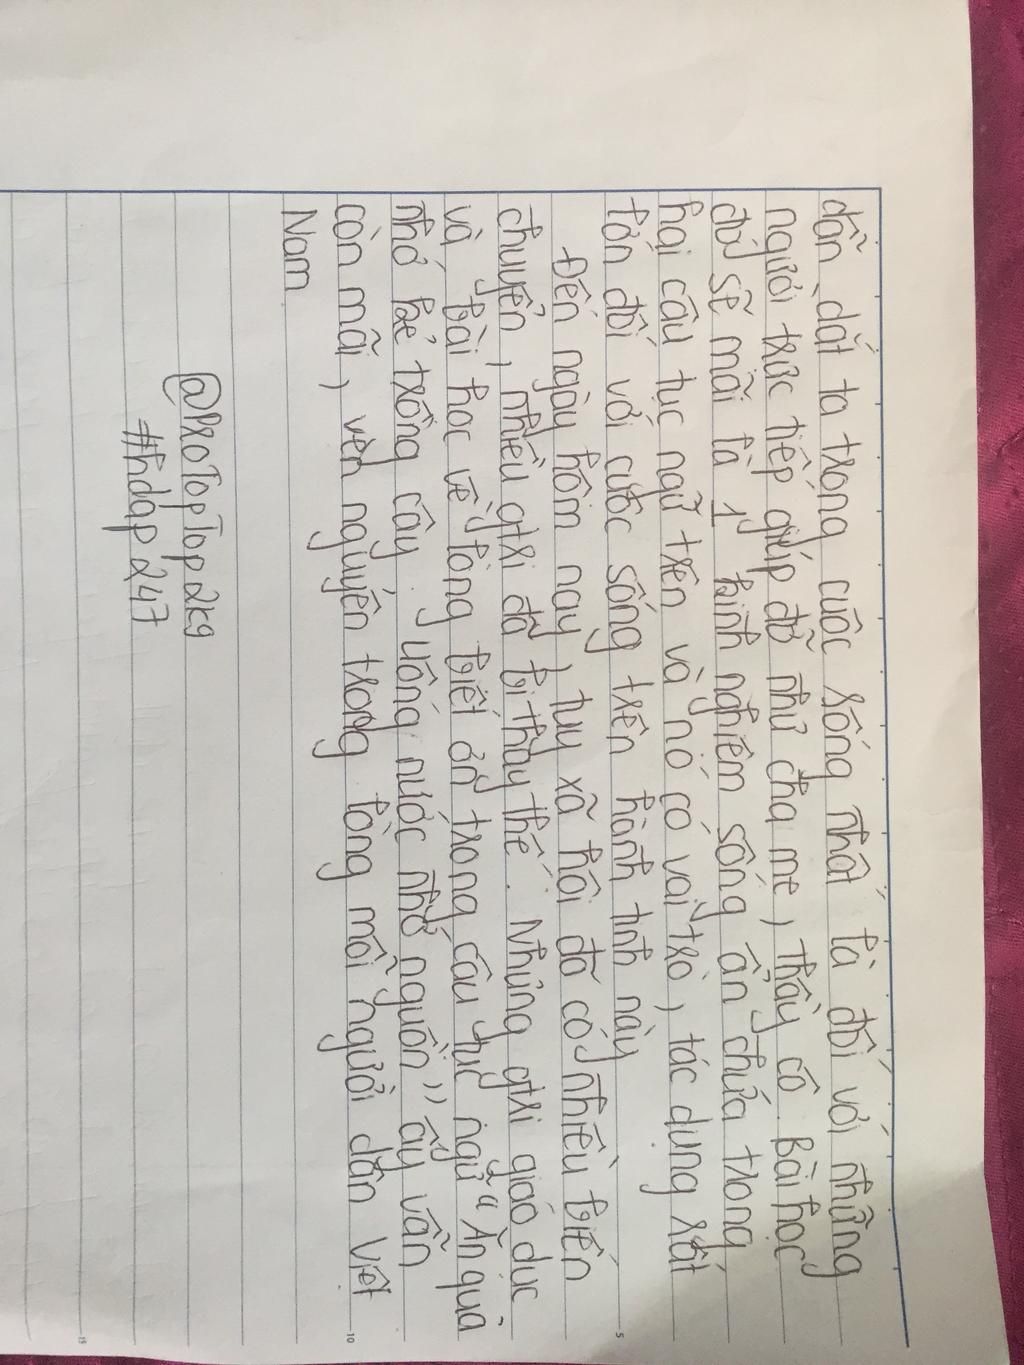 dẫn dắt ta trong cuộc sống nhất là đối với những
người trực tiếp giúp đỡ như cha mẹ, thầy cô. Bài học
đó sẽ mãi là 1 kinh nghiệm sống ẩn chứa trong
hai câu tục ngữ trên và nó có vai trò, tác dụng rất
lớn đối với cuộc sống trên hành tinh này
Đến ngày hôm nay, tuy xã hội đã có nhiều biến
chuyển, nhiều gtri đã bị thay thế. Nhưng gtri giáo dục
và bài học về lòng biết ơn trong câu tục ngữ "Ăn quả
nhớ kẻ trồng cây. Uống nước nhớ nguồn" ấy vẫn
còn mãi, vẹn nguyên trong lòng mỗi người dân Việt
Nam
@ProTopTop2k9
#hdap247
5
10
15